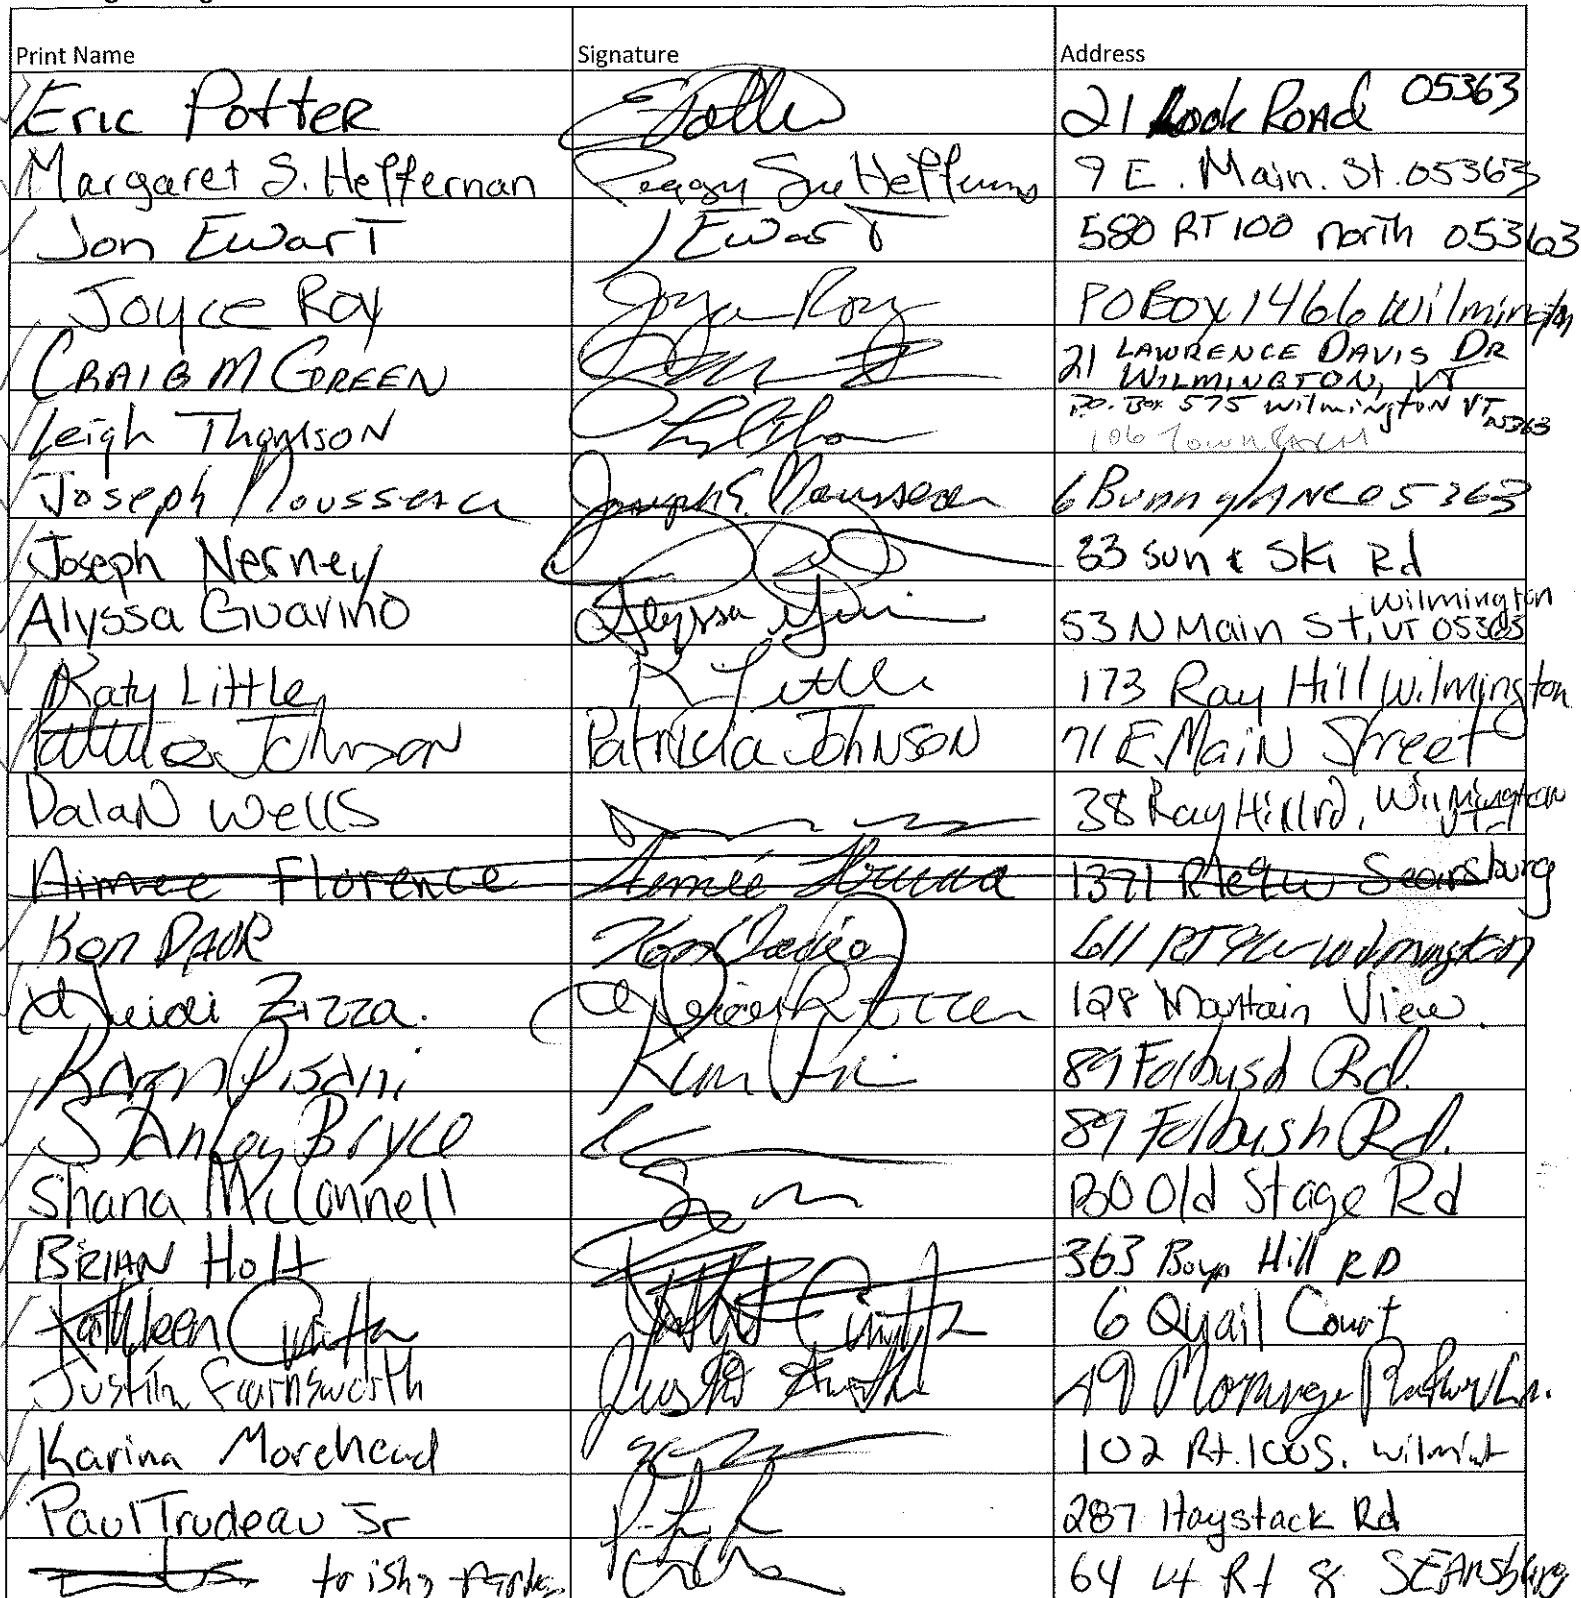 Print Name Signature Address
Eric Potter 21 Look Road 05363
Margaret S. Heffernan Peggy Sue Heffernan 9 E. Main. St. 05363
Jon Ewart J Ewart 580 RT 100 north 05363
Joyce Roy Joyce Roy PO Box 1466 Wilmington
CRAIG M GREEN 21 LAWRENCE DAVIS DR
WILMINGTON, VT
Leigh Thomson P.O. Box 575 Wilmington VT 05363
106 Town
Joseph Mousseau Joseph S. Mousseau 6 Bunny LANE 05363
Joseph Nerney 33 Sun & Ski Rd
Alyssa Guarino Alyssa 53 N Main St, Wilmington
VT 05363
Katy Little K Little 173 Ray Hill Wilmington
Johnson Patricia Johnson 71 E. Main Street
Dalan Wells 38 Ray Hill rd, Wilmington
VT
Aimee Florence Aimée 1371 Rte 9W Searsburg
Ken 611 RT 9W Wilmington
Heidi Zizza. 128 Mountain View.
Karen Pisani 89 Fallbush Rd.
Stanley Bryce 89 Fallbush Rd.
Shana McConnell Old Stage Rd
BRIAN Holt 363 Boyd Hill RD
Kathleen 6 Quail Court
Justin Farnsworth Justin 49
Karina Morehead 102 Rt. 100 S.
Paul Trudeau Jr 287 Haystack Rd
trisha 64 Rt 8 SEArsburg